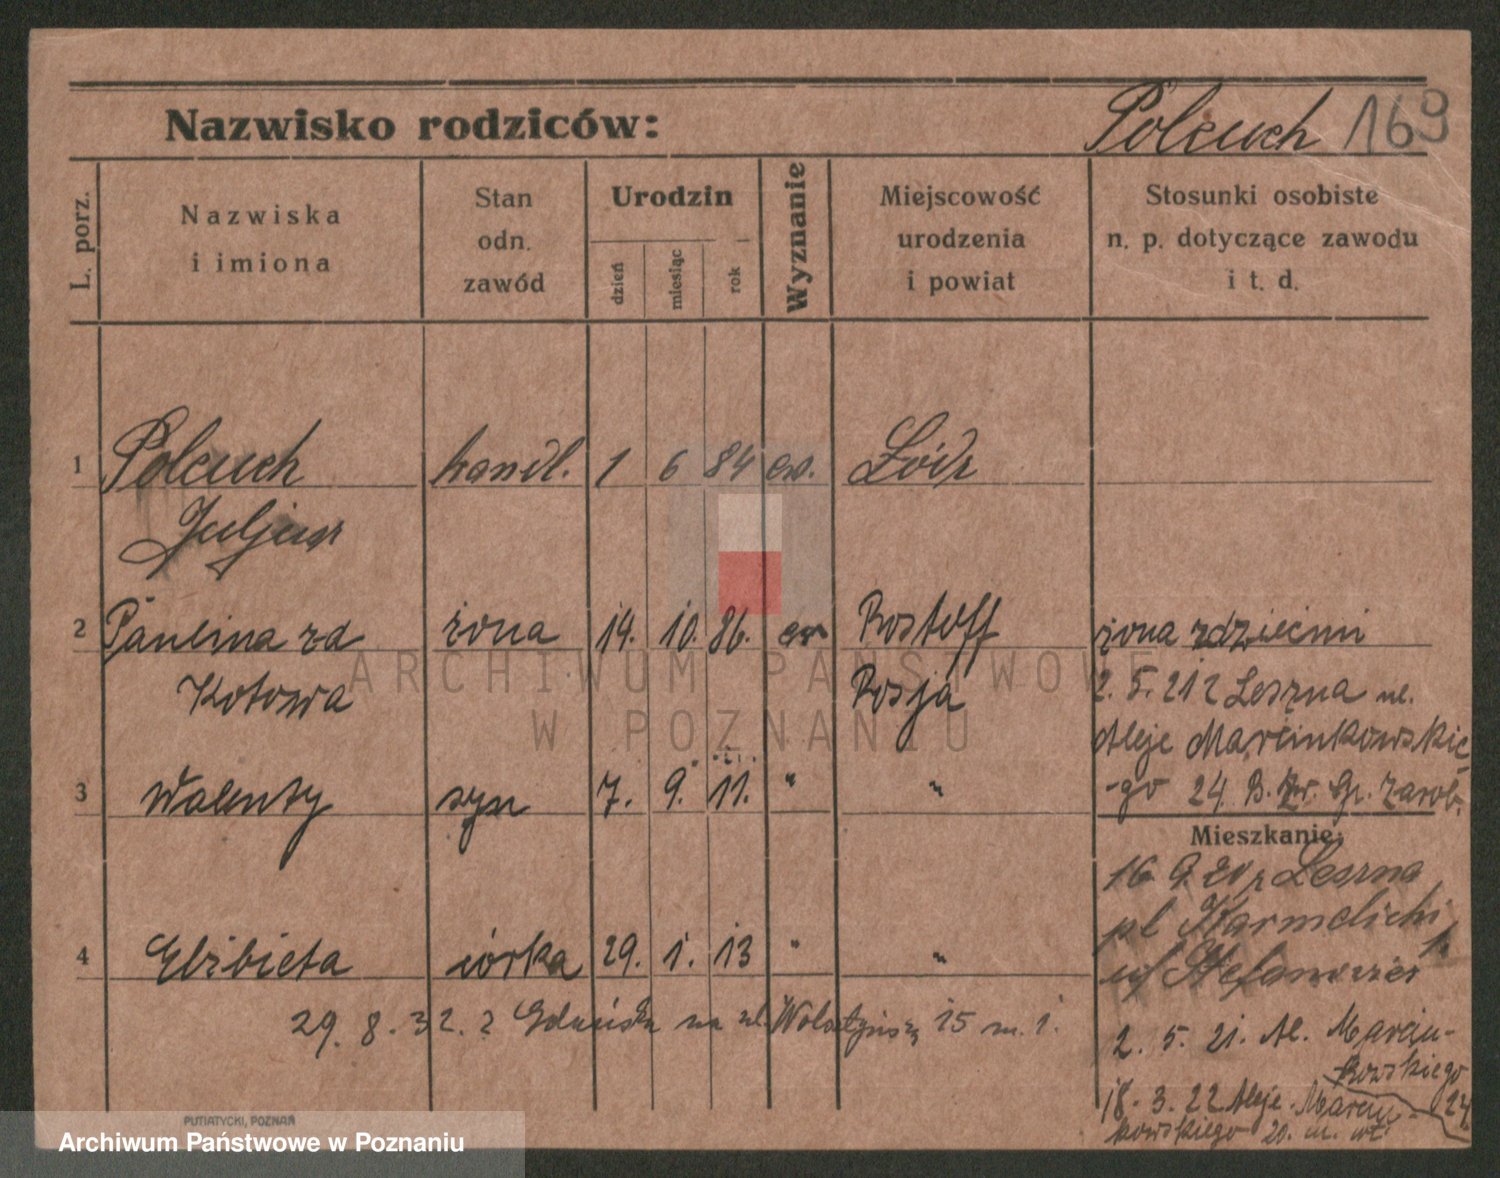 Nazwisko rodziców: Polcuch 169
L. porz.
Nazwiska i imiona
Stan odn. zawód
Urodzin
dzień miesiąc rok
Wyznanie
Miejscowość urodzenia i powiat
Stosunki osobiste n. p. dotyczące zawodu i t. d.
1 Polcuch handl. 1 6 84 ew. Łódz
Juljusz
2 Paulina zd żona 14. 10. 86. ew Rostoff żona z dziećmi
Kotowa Rosja 2. 5. 21 z Leszna ul.
Aleje Marcinkowskie
3 Walenty syn 7. 9. 11. " " -go 24
Mieszkanie:
16 9 20 z Leszna
pl Karmelicki
4 Elżbieta córka 29. 1. 13 " "
29. 8. 32. z Gdańska na ul. 15 m. 1.
2. 5. 21. Al. Marcin-
kowskiego
18. 3. 22 Aleje Marcin- 24
kowskiego 20. m.
ARCHIWUM PAŃSTWOWE
W POZNANIU
PUTIATYCKI, POZNAŃ
Archiwum Państwowe w Poznaniu